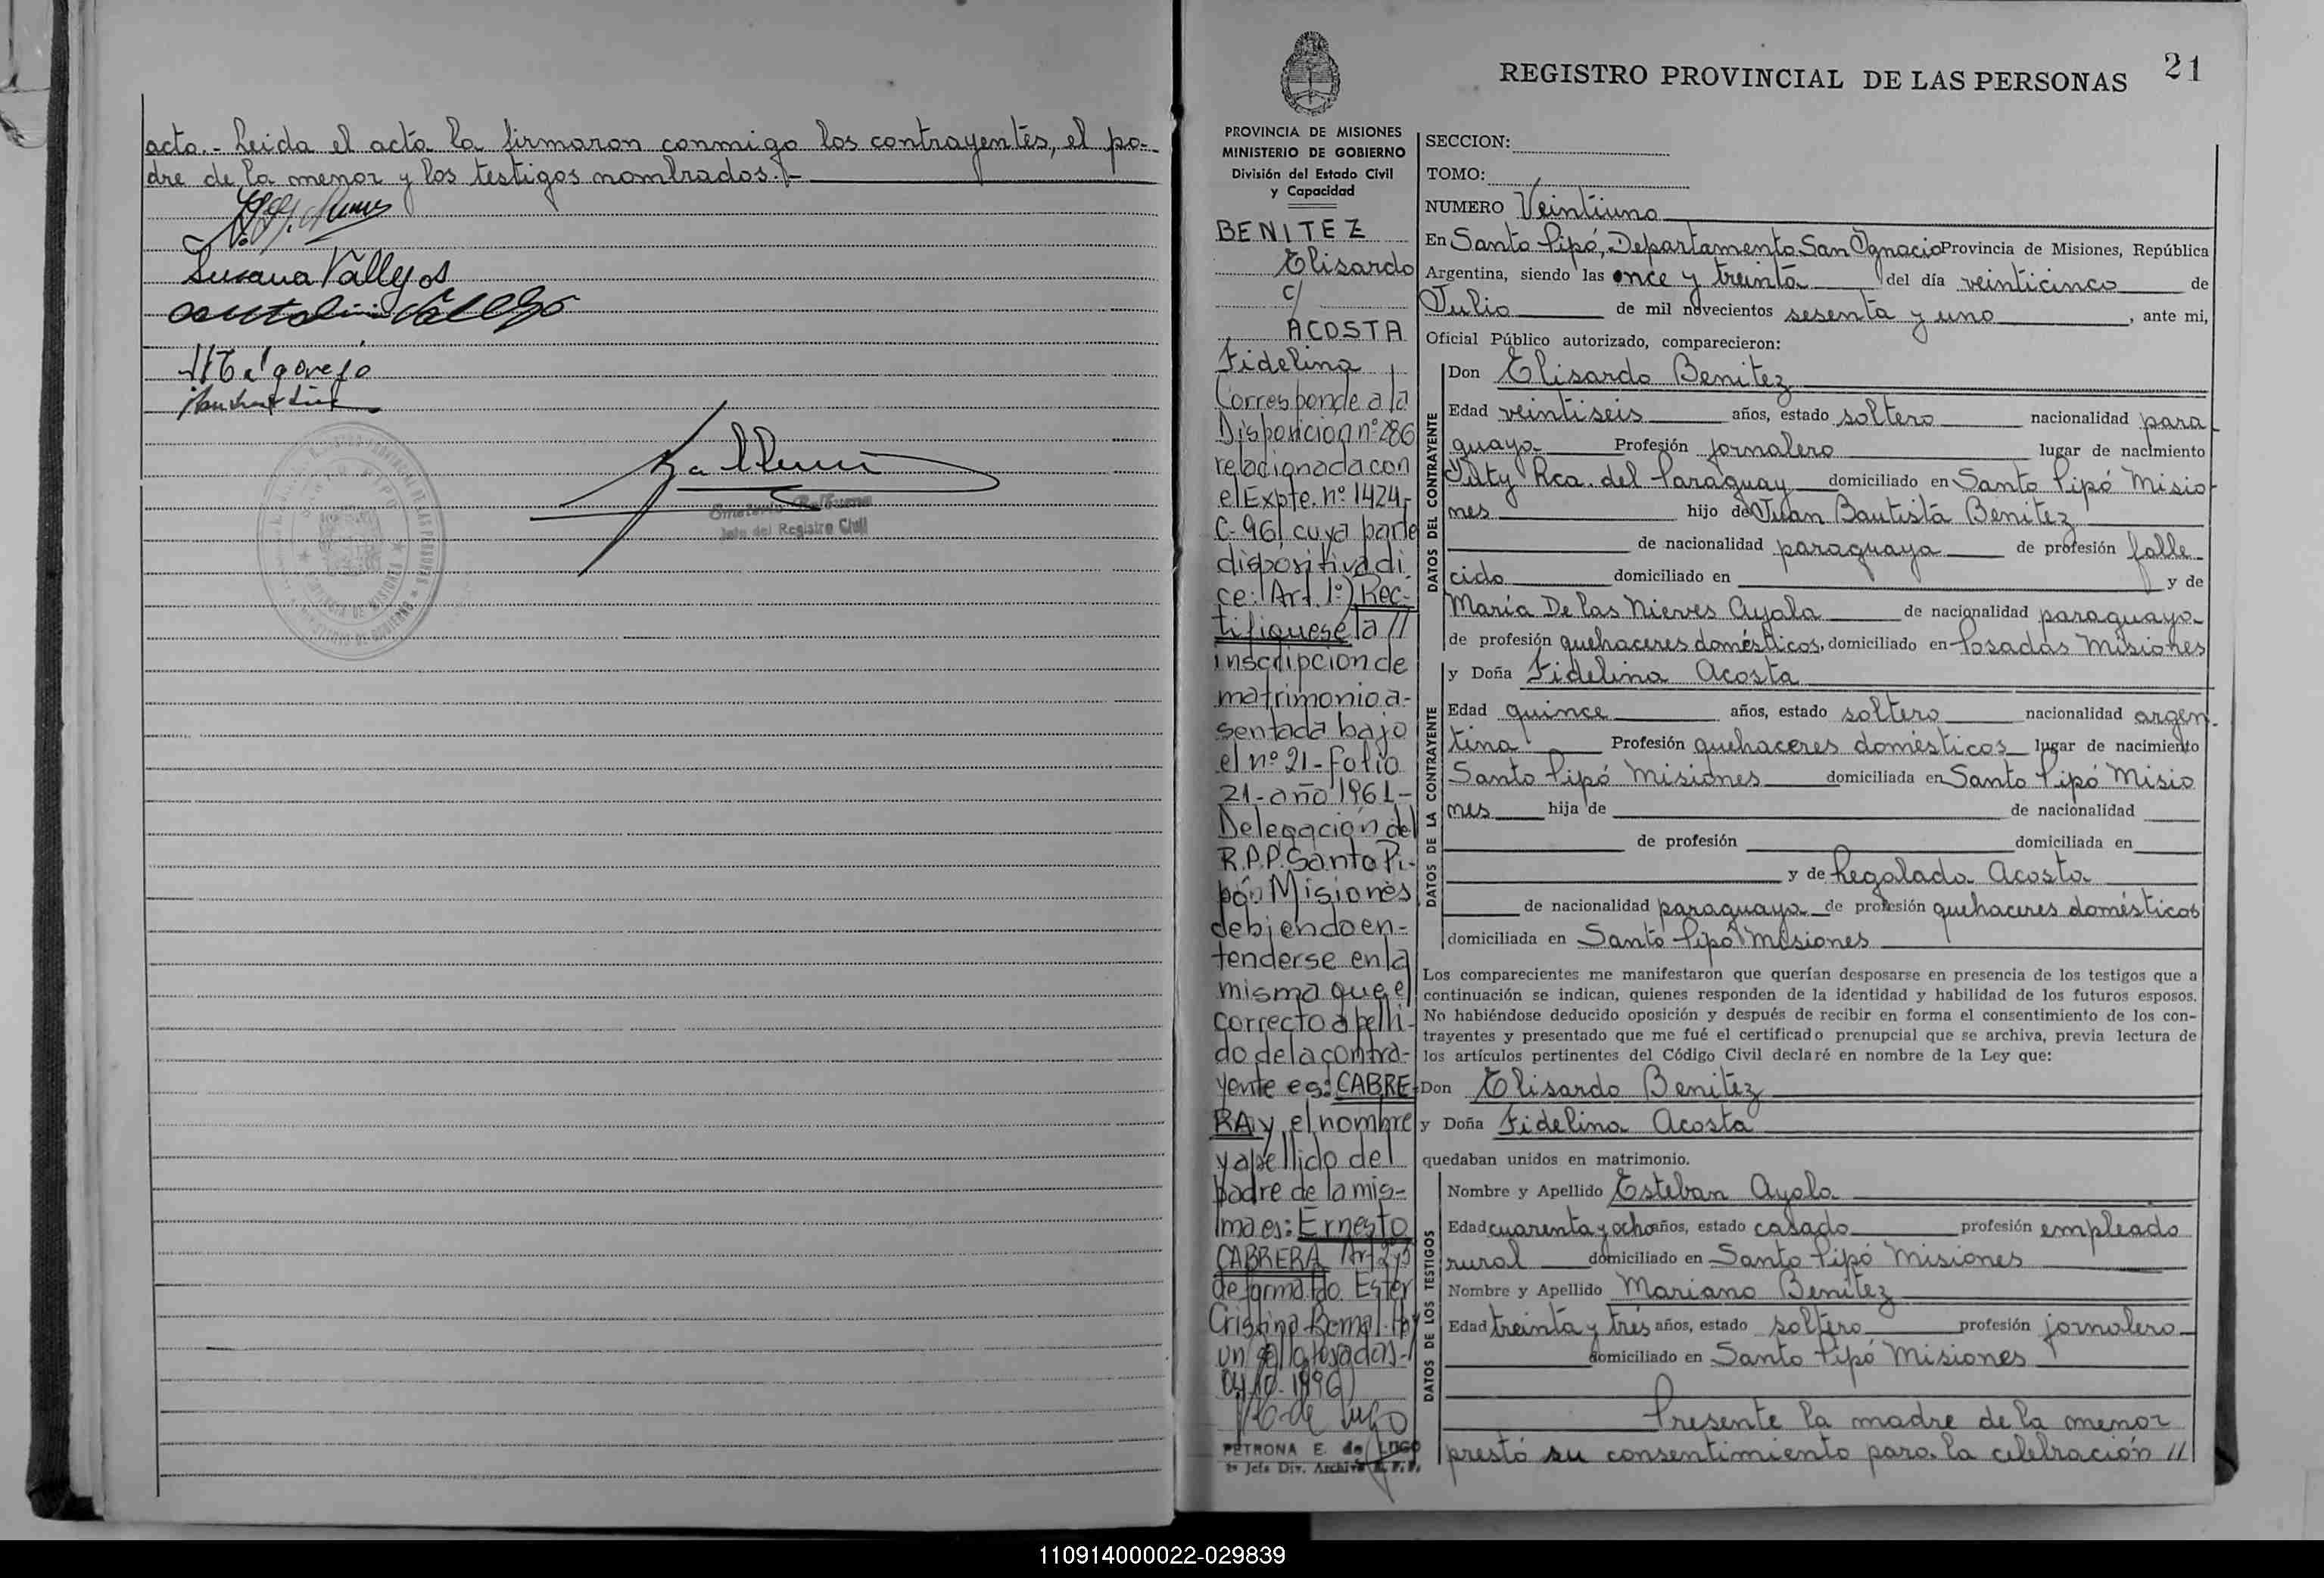 acto.- Leida el acta la firmaron conmigo los contrayentes, el pa-
dre de la menor y los testigos nombrados.-
Susana Vallejos
Jefe del Registro Civil
21
REGISTRO PROVINCIAL DE LAS PERSONAS
PROVINCIA DE MISIONES
MINISTERIO DE GOBIERNO
División del Estado Civil
y Capacidad
BENITEZ
Elisardo
c/
ACOSTA
Fidelina
Corresponde a la
Disposición nº 286
relacionada con
el Expte. nº 1424,-
C-96, cuya parte
dispositiva di
ce: Art. 1º) Rec-
tifiquese la //
inscripcion de
matrimonio a-
sentada bajo
el nº 21-folio
21-año 1961-
Delegación del
R.P.P. Santo Pi-
pó-Misiones
debiendo en-
tenderse en la
misma que el
correcto apelli-
do de la contra-
yente es: CABRE-
RA y el nombre
y apellido del
padre de la mis-
ma es: Ernesto
CABRERA Art 2y3
de forma. Fdo. Ester
Cristina Bernal. Hay
un sello. Posadas-
PETRONA E. de LUGO
Jefe Div. Archivo R.P.P.
SECCION:
TOMO:
NUMERO Veintiuno
En Santo Pipó, Departamento San Ignacio Provincia de Misiones, República
Argentina, siendo las once y treinta del día veinticinco de
Julio de mil novecientos sesenta y uno, ante mi,
Oficial Público autorizado, comparecieron:
DATOS DEL CONTRAYENTE
Don Elisardo Benitez
Edad veintiseis años, estado soltero nacionalidad para
guaya Profesión jornalero lugar de nacimiento
Yuty Rca. del Paraguay domiciliado en Santo Pipó Misio-
nes hijo de Juan Bautista Benitez
de nacionalidad paraguaya de profesión falle
cido domiciliado en y de
María De las Nieves Ayala de nacionalidad paraguaya
de profesión quehaceres domésticos, domiciliado en Posadas Misiones
DATOS DE LA CONTRAYENTE
y Doña Fidelina Acosta
Edad quince años, estado soltera nacionalidad argen-
tina Profesión quehaceres domésticos lugar de nacimiento
Santo Pipó Misiones domiciliada en Santo Pipó Misio
nes hija de de nacionalidad
de profesión domiciliada en
y de Regalada Acosta
de nacionalidad paraguaya de profesión quehaceres domésticos
domiciliada en Santo Pipó Misiones
Los comparecientes me manifestaron que querían desposarse en presencia de los testigos que a
continuación se indican, quienes responden de la identidad y habilidad de los futuros esposos.
No habiéndose deducido oposición y después de recibir en forma el consentimiento de los con-
trayentes y presentado que me fué el certificado prenupcial que se archiva, previa lectura de
los artículos pertinentes del Código Civil declaré en nombre de la Ley que:
Don Elisardo Benitez
y Doña Fidelina Acosta
quedaban unidos en matrimonio.
DATOS DE LOS TESTIGOS
Nombre y Apellido Esteban Ayala
Edad cuarenta y ocho años, estado casado profesión empleado
rural domiciliado en Santo Pipó Misiones
Nombre y Apellido Mariano Benitez
Edad treinta y tres años, estado soltero profesión jornalero
domiciliado en Santo Pipó Misiones
Presente la madre de la menor
prestó su consentimiento para la celebración //
110914000022-029839